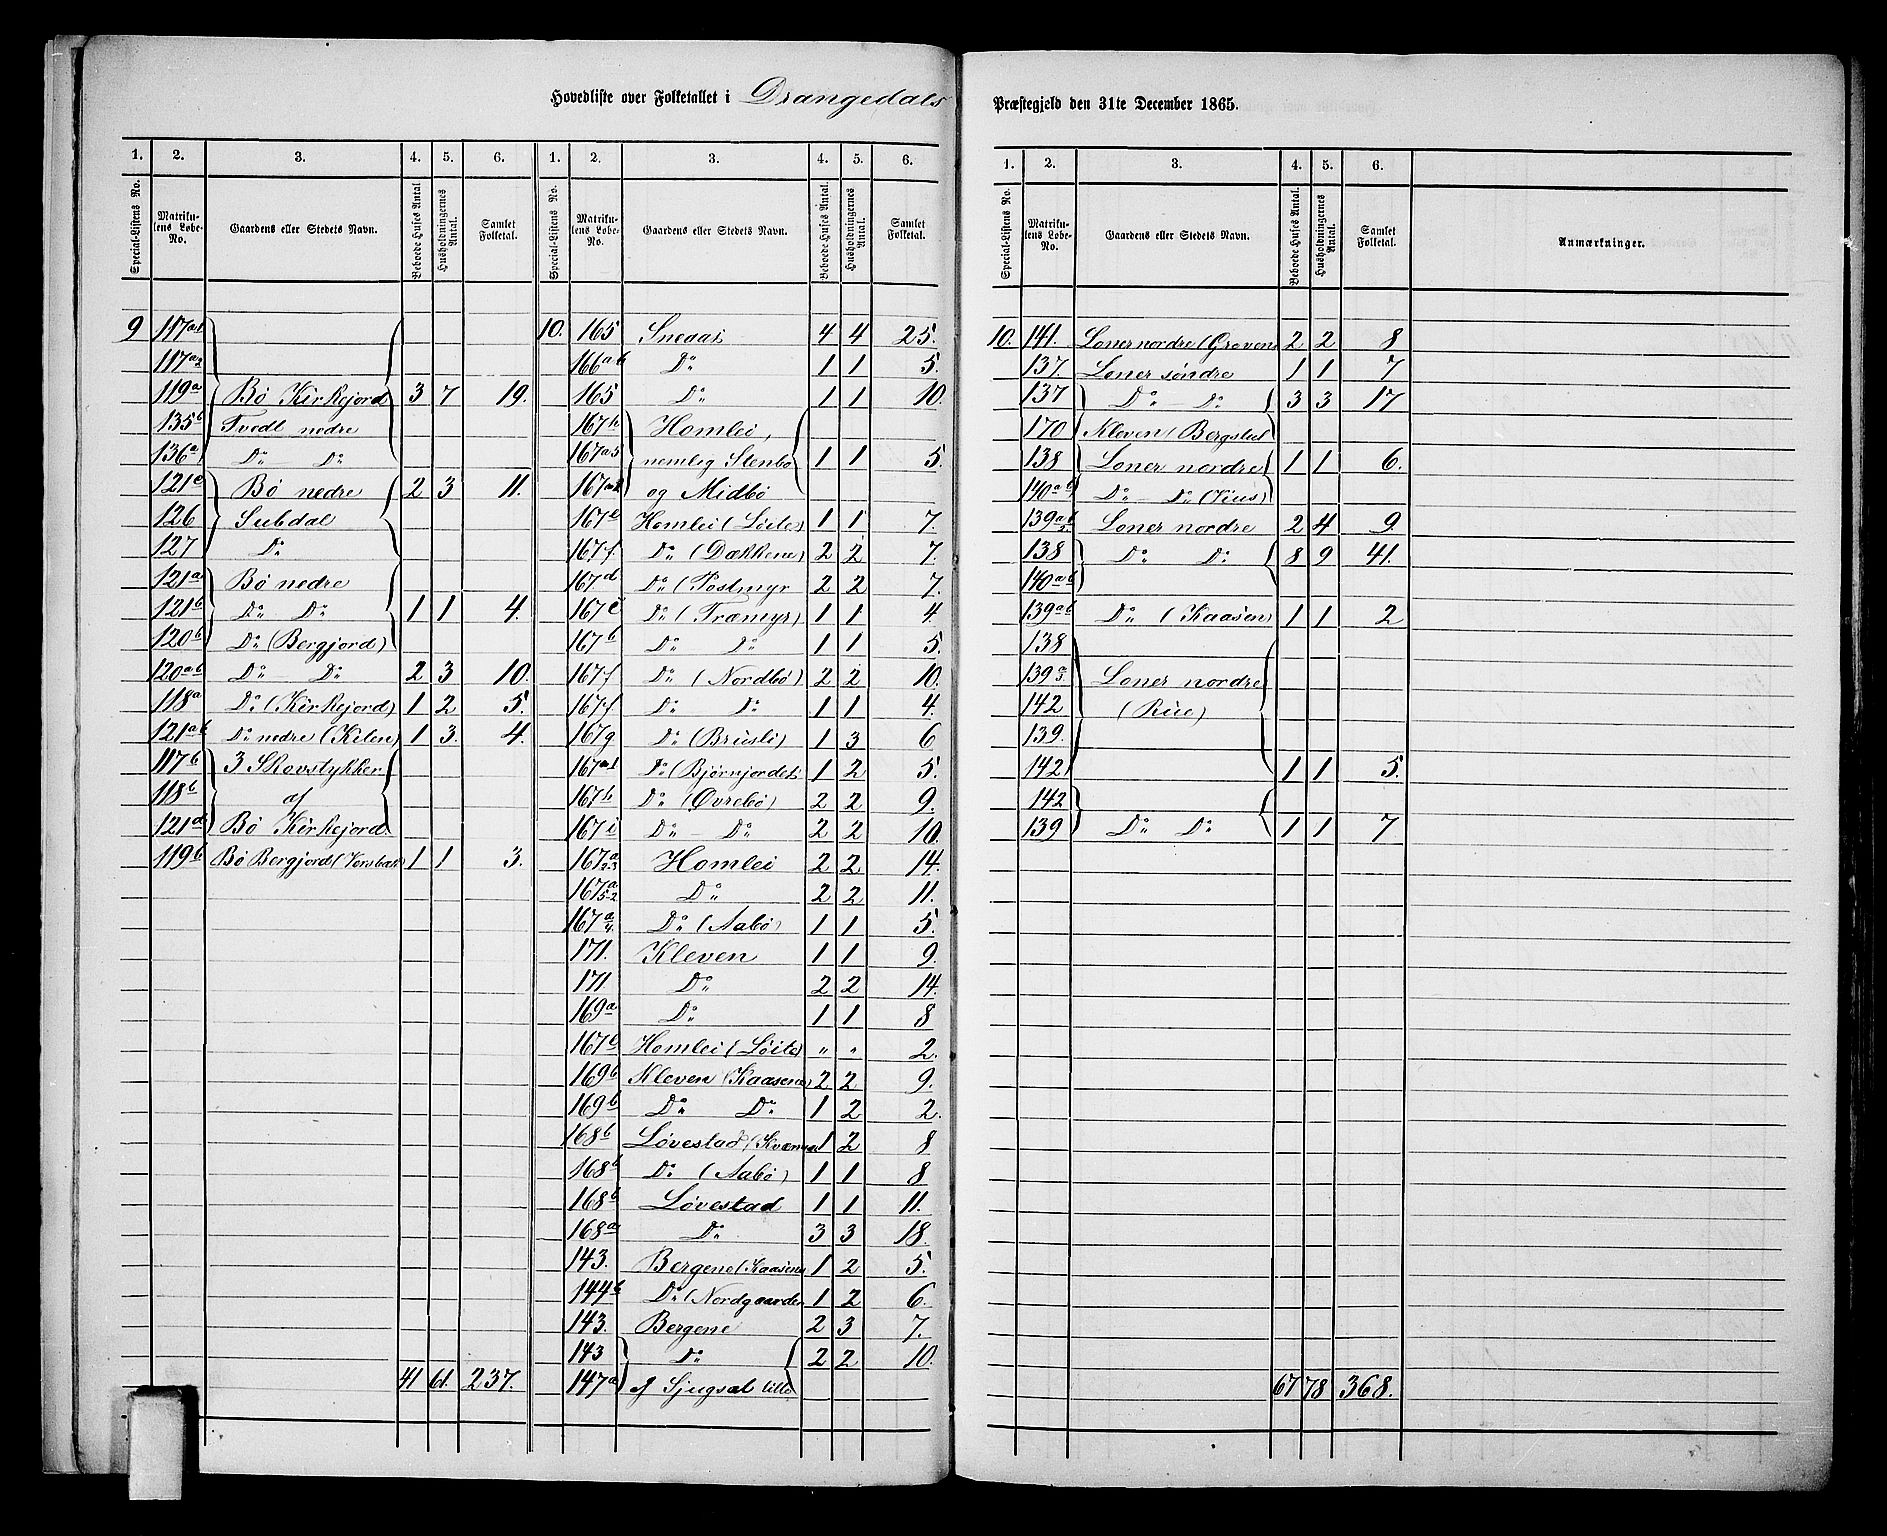 Hovedliste over Folketallet i Drangedals
1. 2. 3. 4. 5. 6. 1. 2. 3. 4. 5. 6.
Special-Listens No. Matrikulens Løbe-No. Gaardens eller Stedets Navn. Beboede Huses Antal Husholdningernes Antal. Samlet Folketal. Special-Listens No. Matrikulens Løbe-No. Gaardens eller Stedets Navn. Beboede Huses Antal. Husholdningernes Antal. Samlet Folketal.
9 117a1
117a2
119a Bø Kirkejord 3 7 19.
135b Tvedt nedre
136a Do Do
121c Bø nedre 2 3 11.
126 Subdal
127 Do
121a Bø nedre
121b Do Do 1 1 4.
120b Do (Bergjord)
120ab Do Do 2 3 10.
118a Do (Kirkejord) 1 2 5.
121ab Do nedre (Kilen) 1 3. 4.
117b 3 Skovstykker
118b af
121d Bø Kirkejord.
119b Bø Bergjord 1 1 3.
41 61. 237.
10. 165 Sneaas 4 4 25.
166ab Do 1 1 5.
165 Do 1 1 10.
167h Homlei,
167a5 nemlig Stenbø 1 1 5.
167a2 og Midbø
167e Homlei (Løite) 1 1 7.
167f. Do (Dækkene) 2 2 7.
167d Do (Postmyr 2 2 7.
167c Do (Træmyr) 1 1 4.
167b Do Do 1 1 5.
167f Do (Nordbø) 2 2 10.
167f. Do Do 1 1 4.
167g Do (Brusli) 1 3 6
167a1 Do (Bjørnjordet 1 2 5.
167h Do (Øvrebø) 2 2 9.
167i Do Do 2 2 10.
167a2-3 Homlei 2 2 14.
167a5-2 Do 2 2 11.
167a4. Do (Aabø) 1 1 5.
171. Kleven 1 1 9.
171 Do 2 2 14.
169a Do 1 1 8
167e Homlei (Løite) " " 2.
169b Kleven (Kaasene) 2 2 9.
169b Do Do 1 2 2.
168b Løvestad 1 2 8
168b Do (Aabø) 1 1 8
168b Løvestad 1 1 11.
168a Do 3 3 18.
143. Bergene (Kaasene 1 2 5.
144b Do (Nordgaarden 1 2 6.
143. Bergene 2 3 7.
143 Do 2 2 10.
147a af Sjugsal lille
Præstegjeld den 31te December 1865.
1. 2. 3. 4. 5. 6.
Special-Listens No. Matrikulens Løbe-No. Gaardens eller Stedets Navn. Beboede Huses Antal. Husholdningernes Antal. Samlet Folketal. Anmærkninger.
10. 141. Loner nordre (Groven 2 2 8
137. Loner søndre 1 1 7
137 Do Do 3 3 17
170 Kleven (Bergstul
138 Loner nordre 1 1 6.
140ab Do Do (Kius)
139ab2. Loner nordre 2 4 9.
138 Do Do 8 9 41.
140ab
139ab Do (Kaasen) 1 1 2
138
139a3. Loner nordre
142 (Rue)
139.
142 1 1 5.
142
139 Do Do 1 1 7
67 78 368.